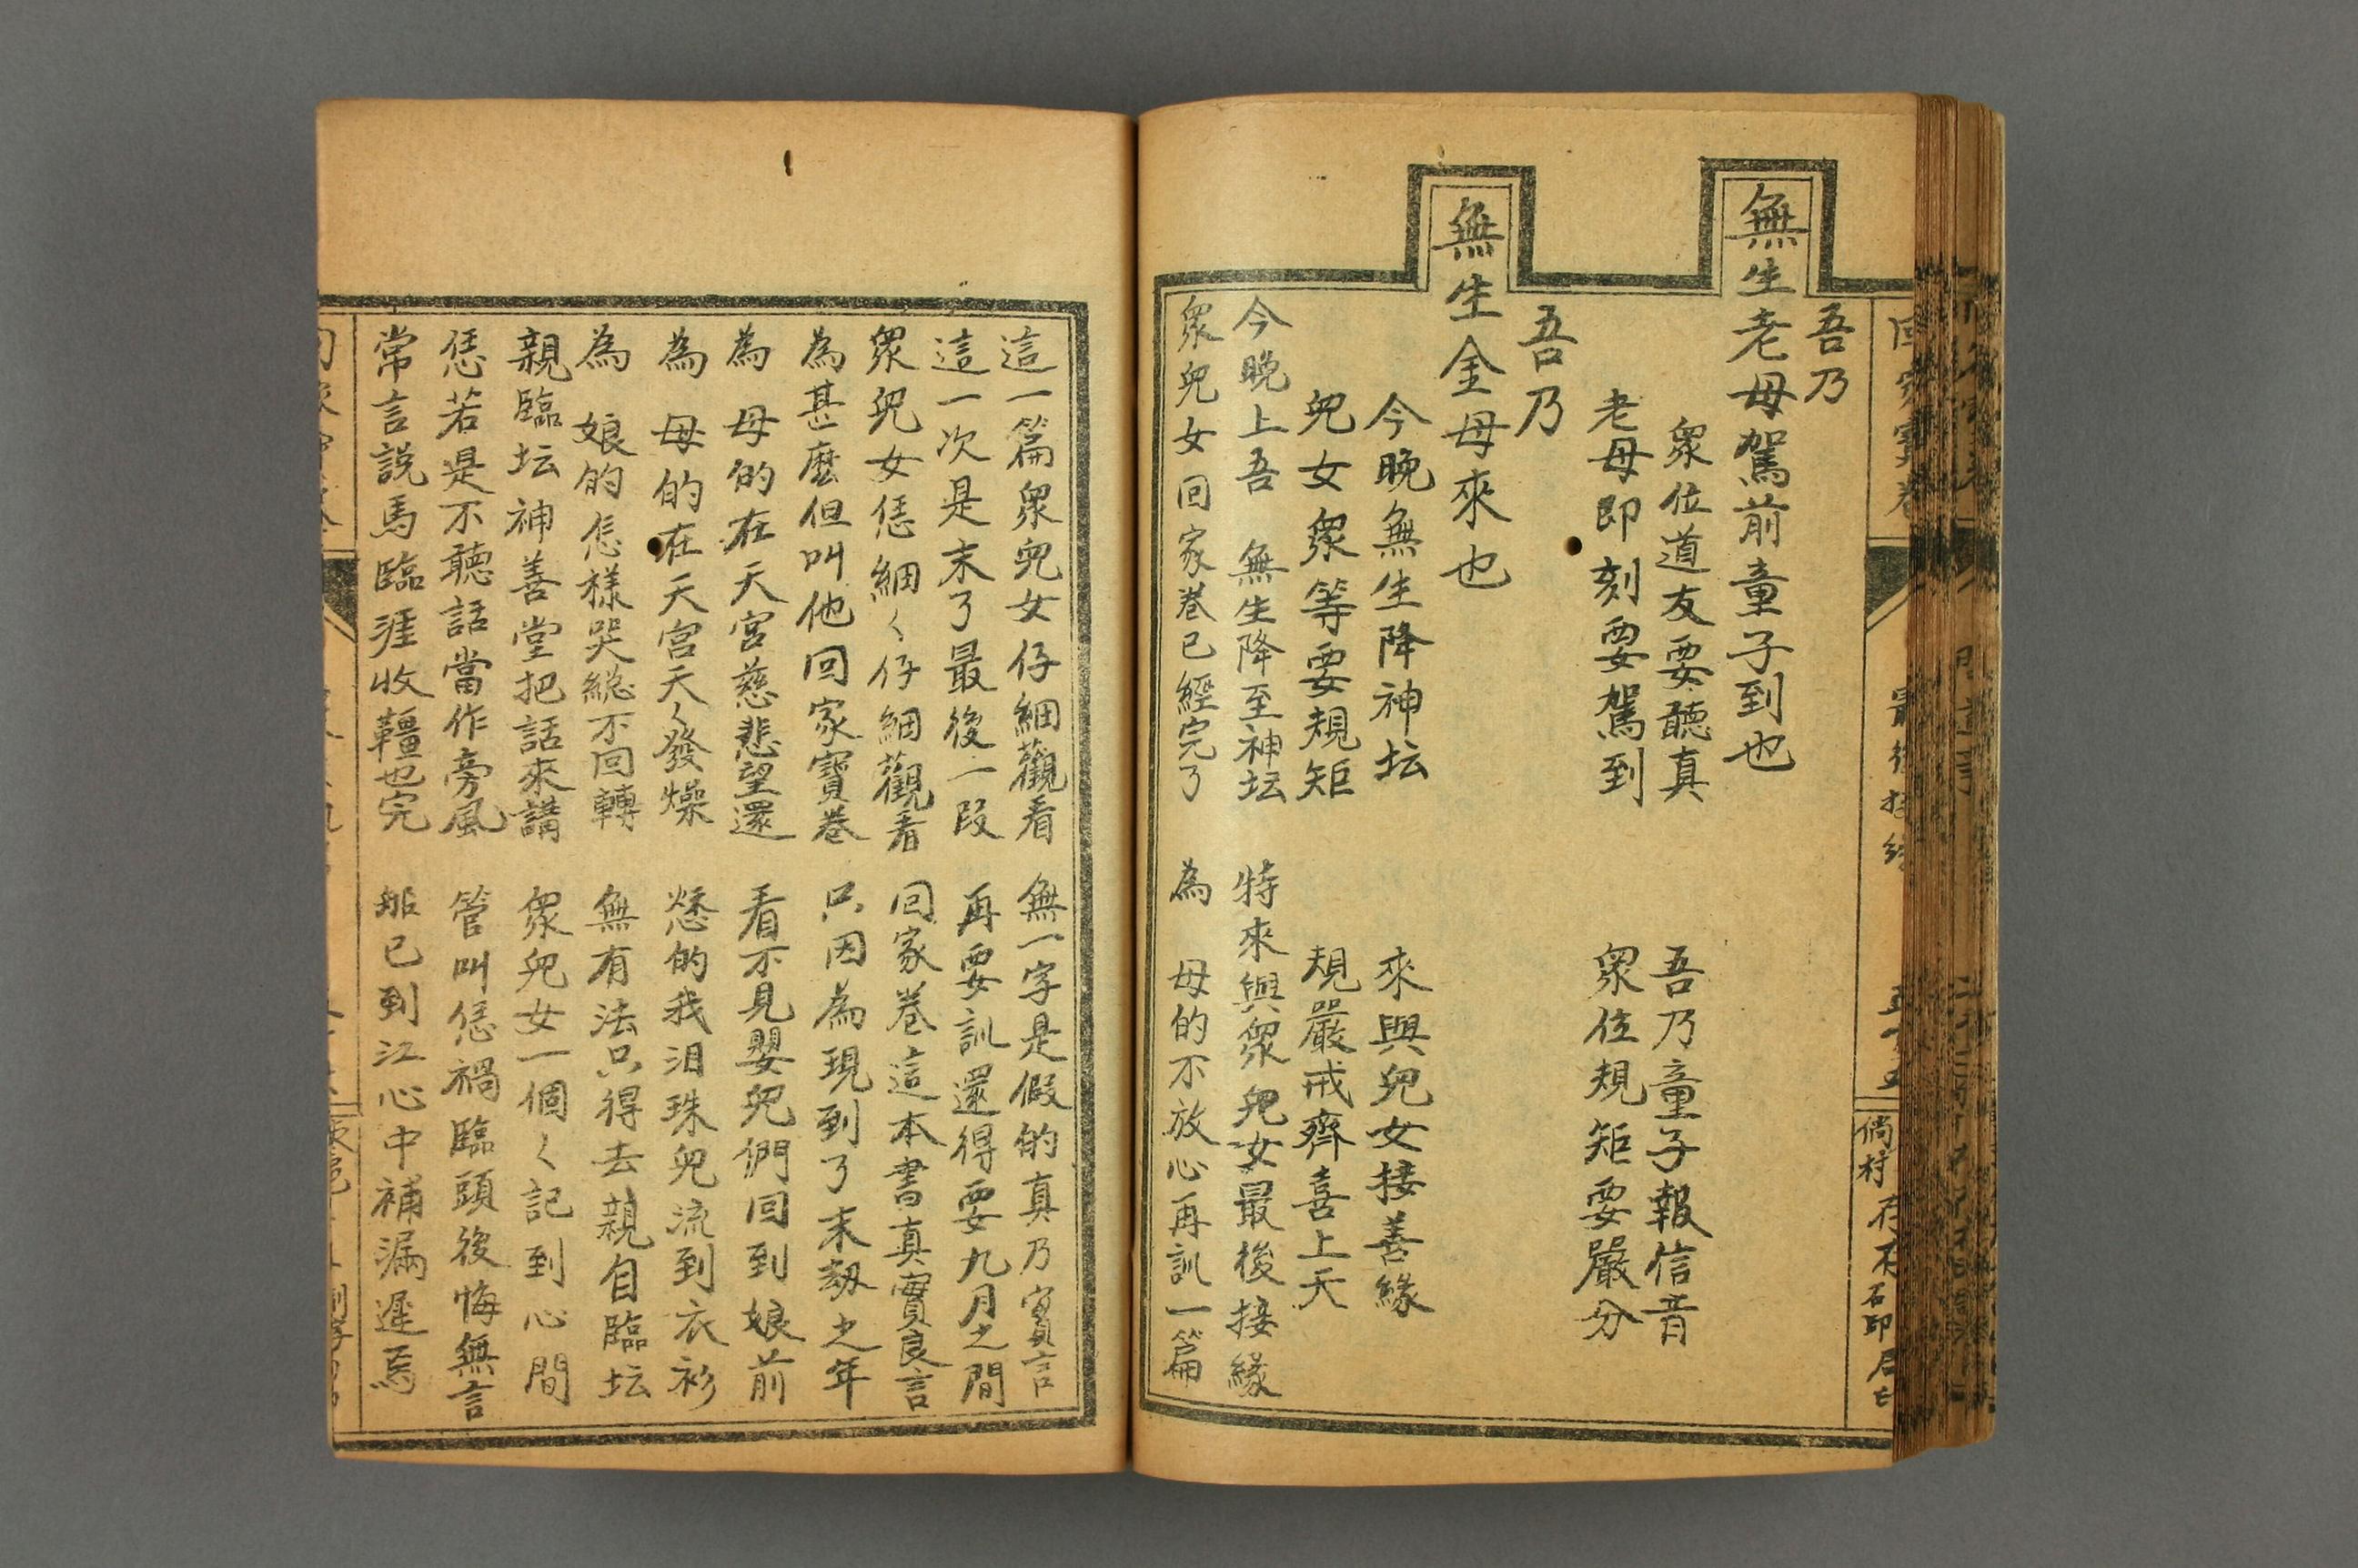 吾乃
無生老母駕前童子到也
衆位道友要聽真 吾乃童子報信音
老母即刻要駕到 衆位規矩要嚴分
吾乃
無生金母來也
今晚無生降神坛 來與兒女接善緣
兒女衆等要規矩 規嚴戒齊喜上天
今晚上吾 無生降至神坛 特來與衆兒女最後接緣
衆兒女回家卷已經完了 為 母的不放心再訓一篇
這一篇衆兒女仔細觀看 無一字是假的真乃實言
這一次是末了最後一段 再要訓還得要九月之間
衆兒女恁細〱仔細觀看 回家卷這本書真實良言
為甚麼但叫他回家寳卷 只因為現到了末劫之年
為 母的在天宮慈悲望還 看不見嬰兒們回到娘前
為 母的在天宮天〱發燥 愁的我泪珠兒流到衣衫
為 娘的怎樣哭總不回轉 無有法只得去親自臨坛
親臨坛神善堂把話來講 衆兒女一個〱記到心間
恁若是不聽話當作旁風 管叫恁禍臨頭後悔無言
常言説馬臨涯收韁也完 船已到江心中補漏遲焉